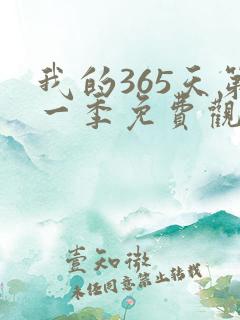 我的365天第
一季免費觀
壹知微
未经同意禁止转载